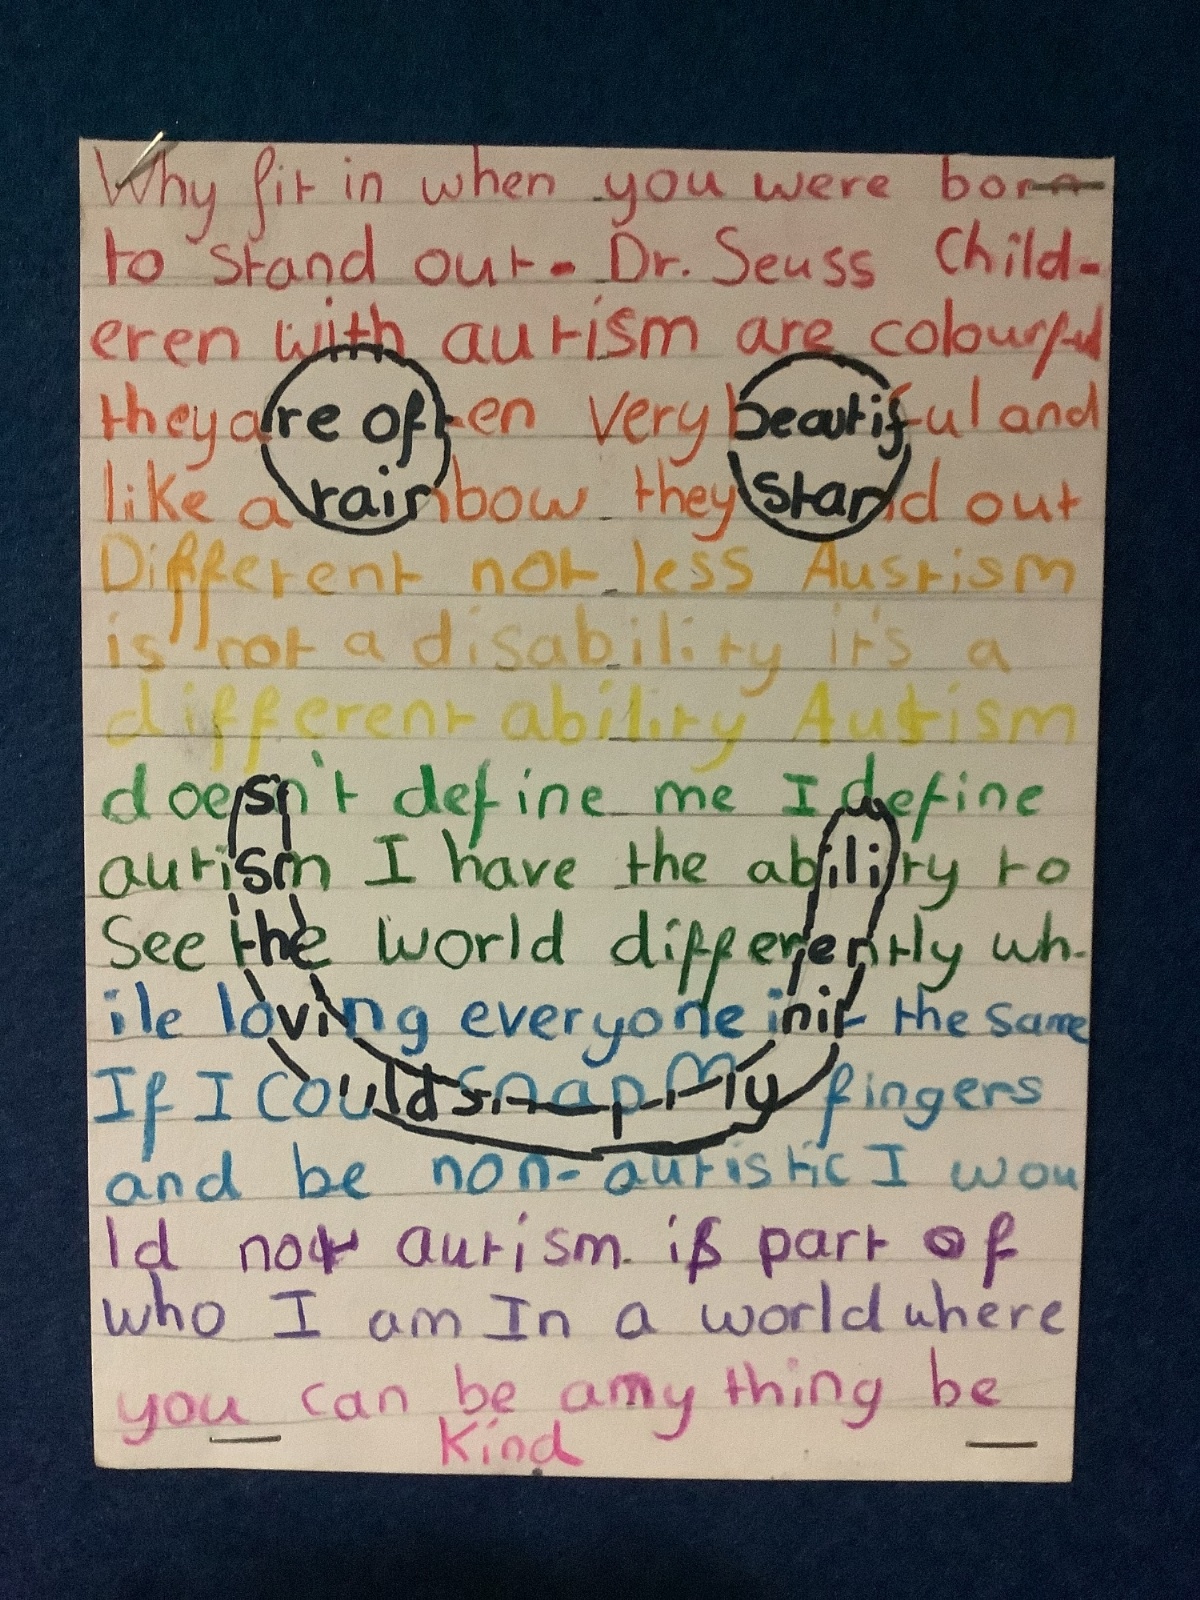 Why fit in when you were born
to stand out - Dr. Seuss Child-
eren with autism are colourful
they are often very beautiful and
like a rainbow they stand out
Different not less Austism
is not a disability it's a
different ability Autism
doesn't define me I define
autism I have the ability to
See the world differently wh-
ile loving everyone init the same
If I Could snap My fingers
and be non-autistic I wou
ld not autism is part of
who I am In a world where
you can be any thing be
Kind